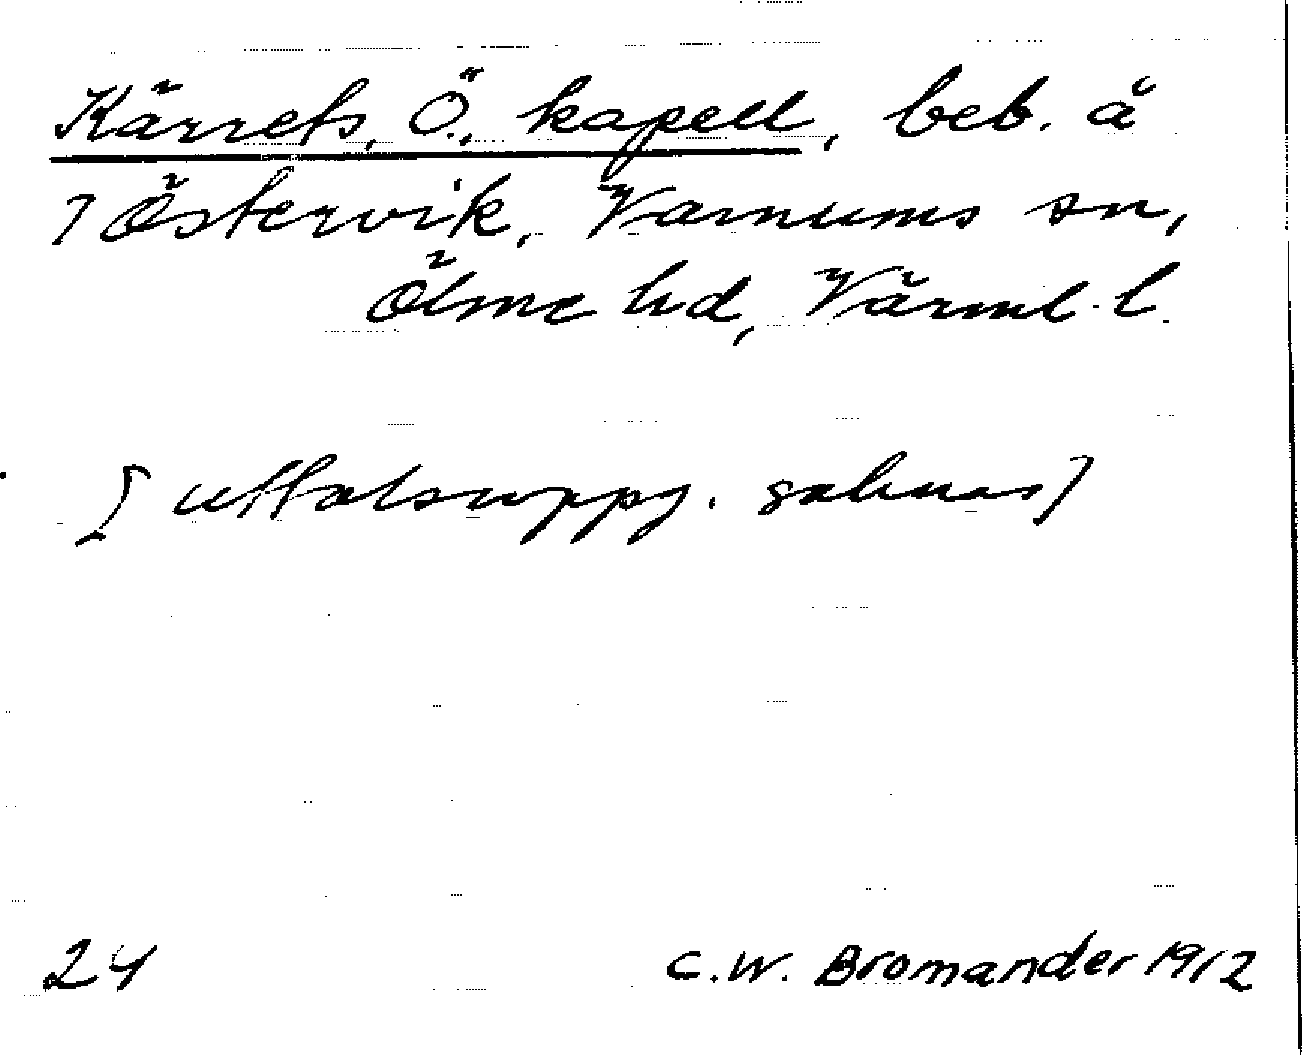 Kärrets, Ö., kapell, beb. å
7 Östervik, Varnums sn,
Ölme hd, Värml. l.
[uttalsuppg. saknas]
24
C.W. Bromander 1912